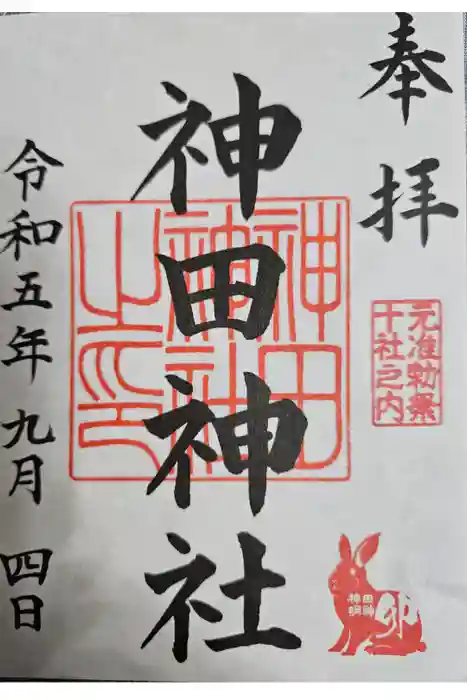 奉拝
元准勅祭
十社之内
神田神社
神田
神社
之印
神田
明神
卯
令和五年九月四日